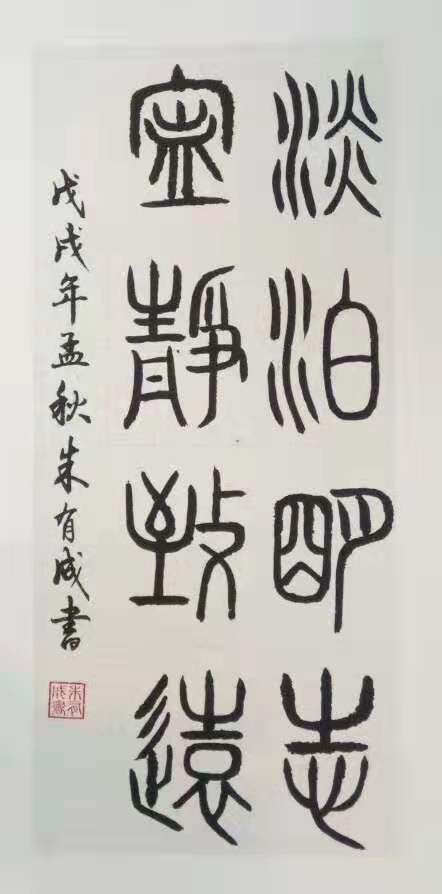 淡泊明志
寧靜致遠
戊戌年孟秋朱有成書